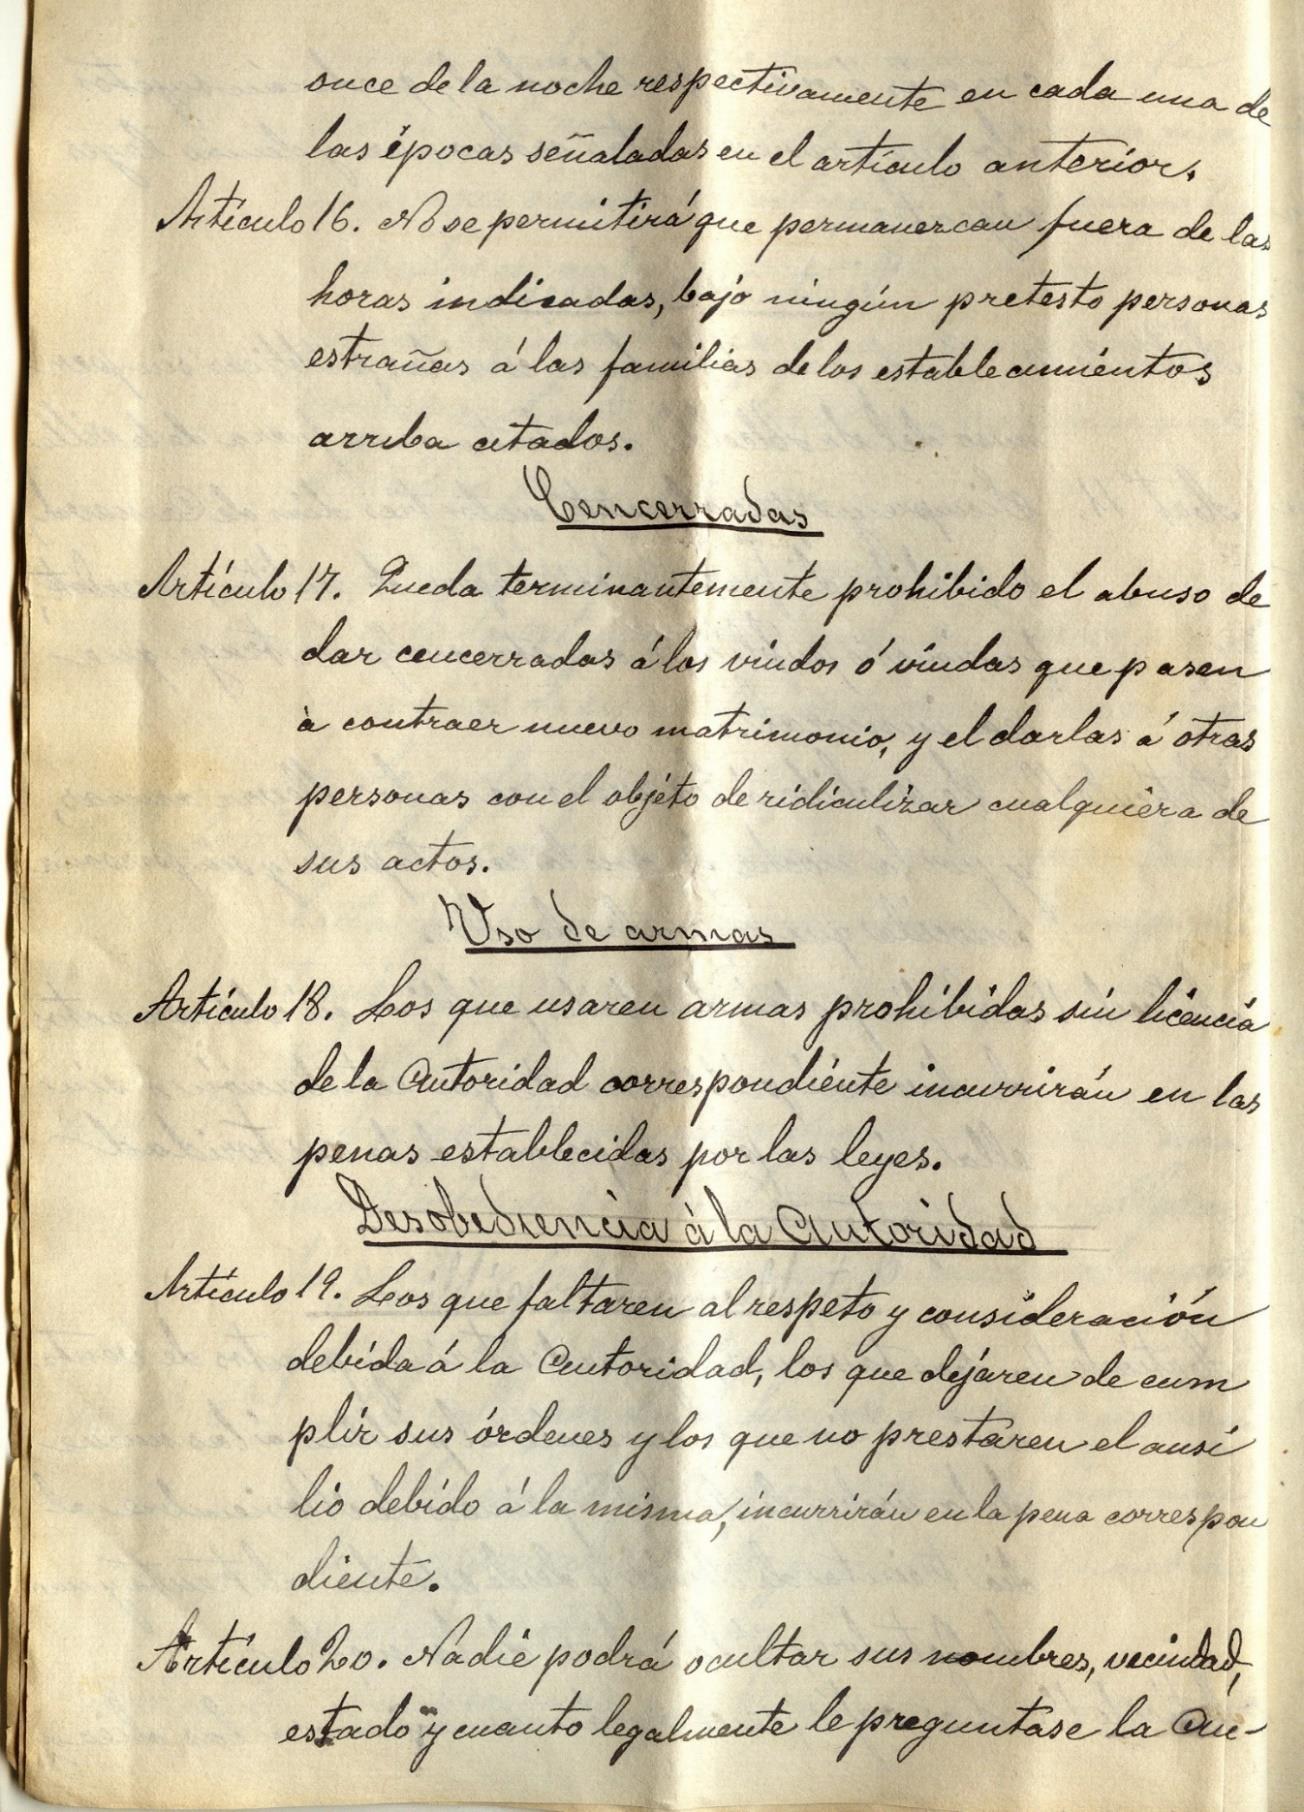 once de la noche respectivamente en cada una de
las épocas señaladas en el artículo anterior.
Artículo 16. No se permitirá que permanezcan fuera de las
horas indicadas, bajo ningún pretesto personas
estrañas á las familias de los establecimientos
arriba citados.
Cencerradas
Artículo 17. Queda terminantemente prohibido el abuso de
dar cencerradas á los viudos ó viudas que pasen
à contraer nuevo matrimonio, y el darlas á otras
personas con el objéto de ridiculizar cualquiera de
sus actos.
Uso de armas
Artículo 18. Los que usaren armas prohibidas sin licencia
de la Autoridad correspondiente incurrirán en las
penas establecidas por las leyes.
Desobediencia á la Autoridad
Artículo 19. Los que faltaren al respeto y consideración
debida á la Autoridad, los que dejáren de cum
plir sus órdenes y los que no prestaren el ausi
lio debido á la misma, incurrirán en la pena correspon
diente.
Artículo 20. Nadie podrá ocultar sus nombres, vecindad,
estado y cuanto legalmente le preguntase la Au-